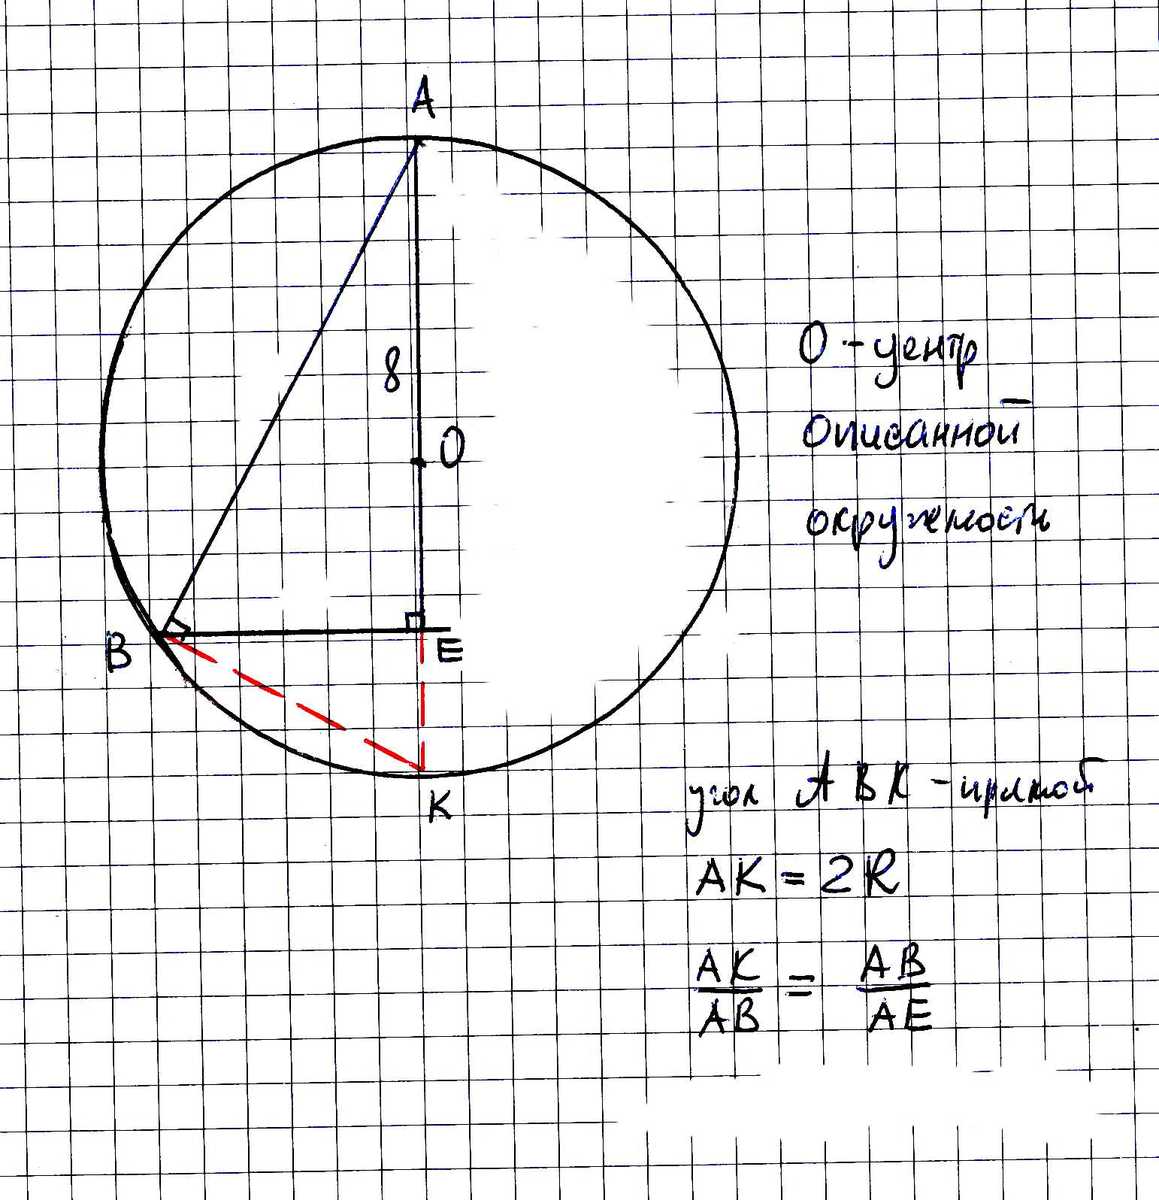 A
8
O
O - центр
описанной
окружность
B
E
K
угол ABK - прямой
AK = 2R
AK/AB = AB/AE